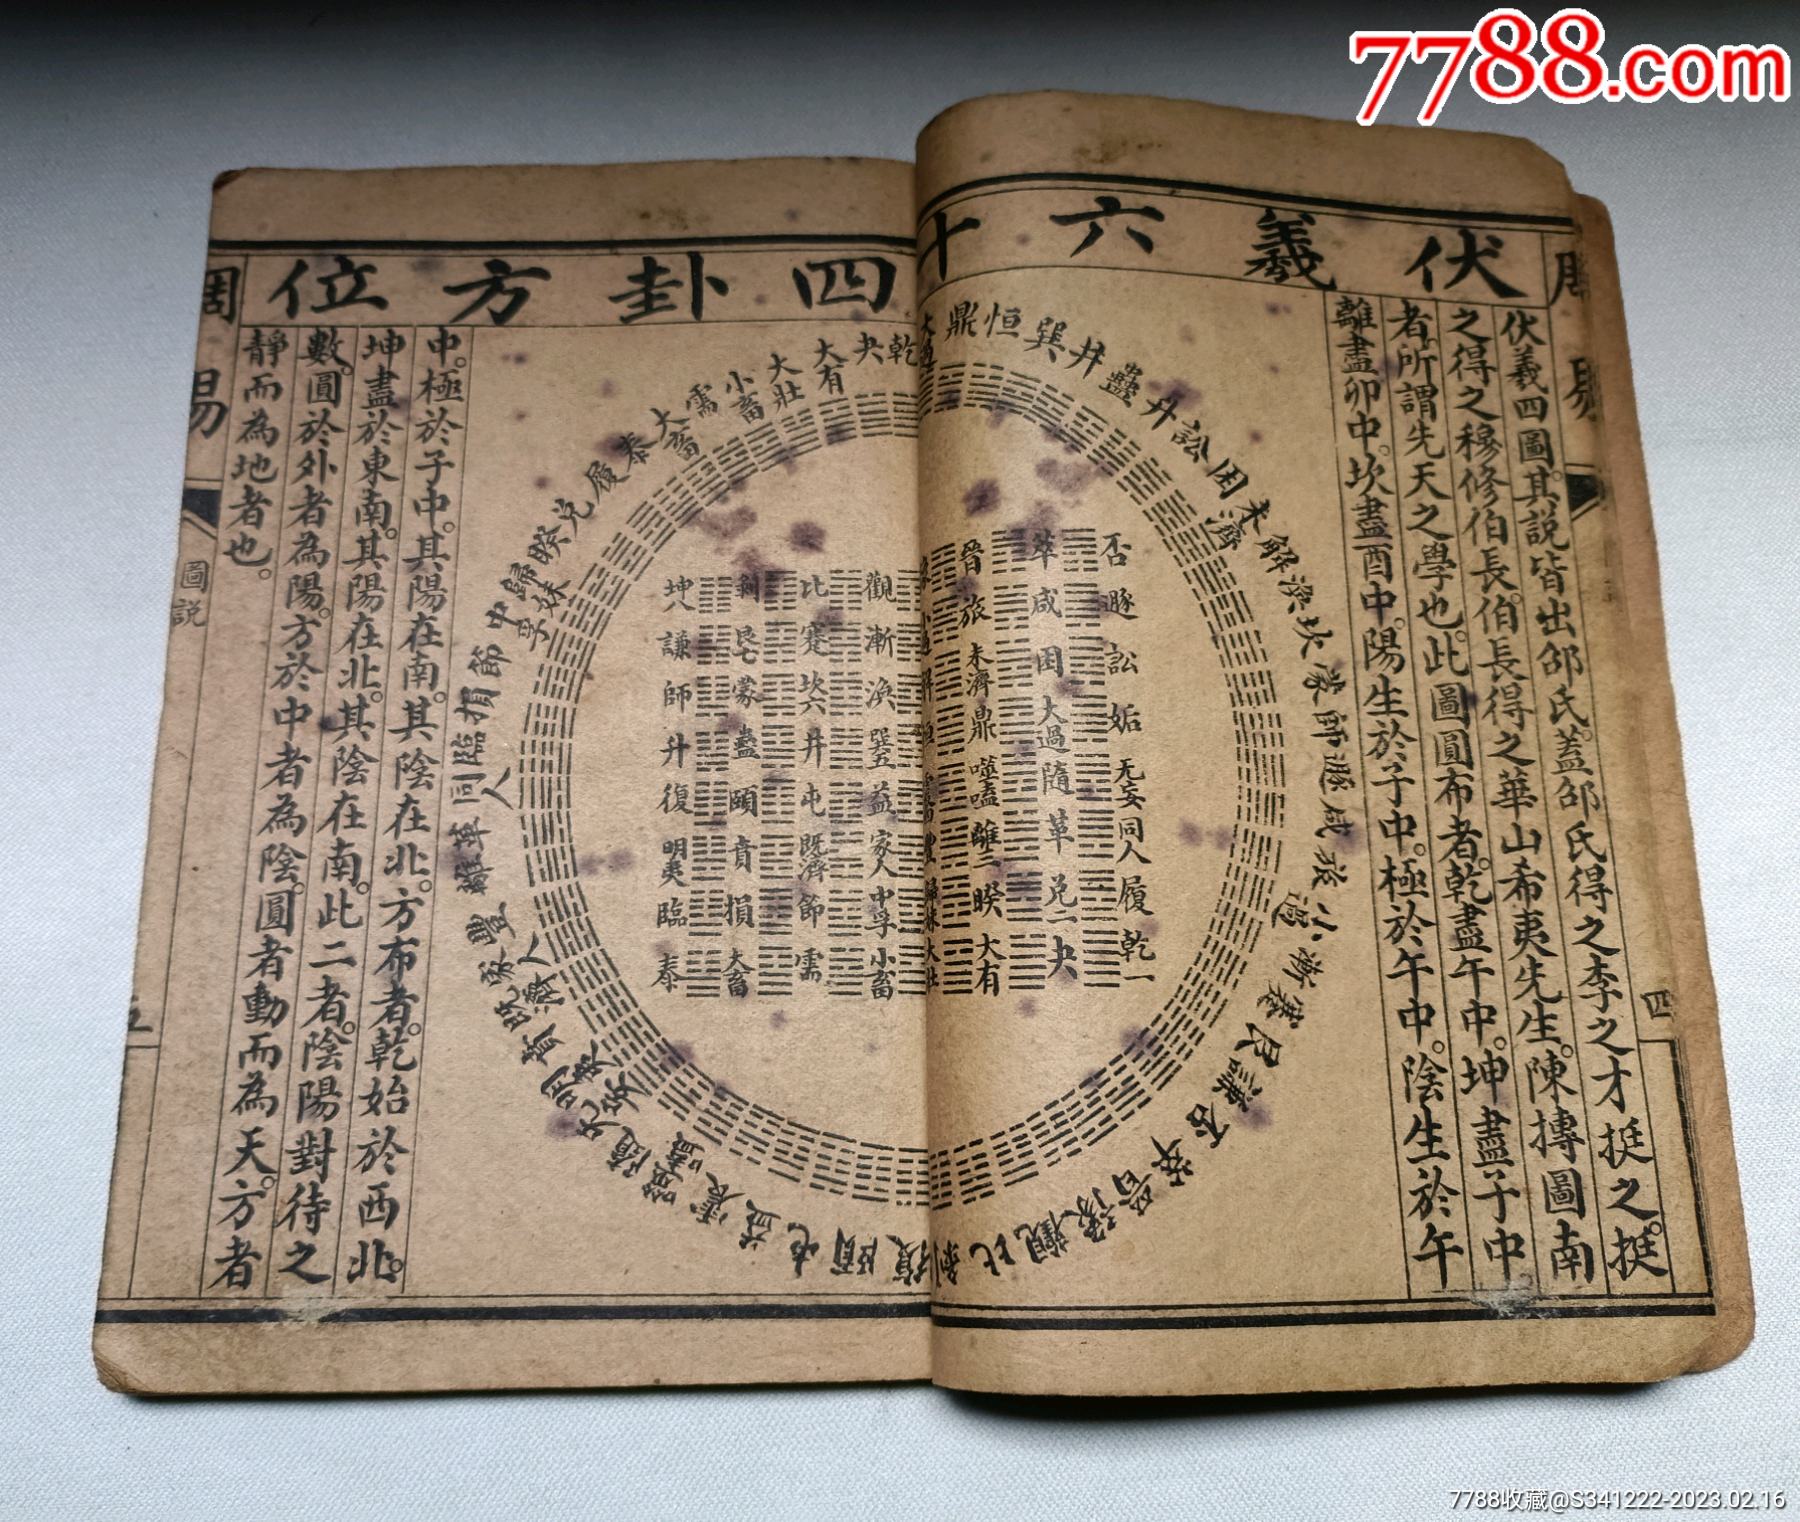 7788.com
伏羲六十四卦方位
周易
四
伏羲四圖。其說皆出邵氏。蓋邵氏得之李之才挺之。挺
之得之穆修伯長。伯長得之華山希夷先生。陳摶圖南
者。所謂先天之學也。此圖圓布者。乾盡午中。坤盡子中
離盡卯中。坎盡酉中。陽生於子中。極於午中。陰生於午
中。極於子中。其陽在南。其陰在北。方布者。乾始於西北。
坤盡於東南。其陽在北。其陰在南。此二者。陰陽對待之
數。圓於外者為陽。方於中者為陰。圓者動而為天。方者
靜而為地者也。
周易
圖說
乾夬大有大壯小畜需大畜泰履兌睽歸妹中孚節損臨同人革離豐家人既濟賁明夷无妄隨噬嗑震益屯頤復
鼎恒巽井蠱升訟困未濟解渙坎蒙師遯咸旅小過漸蹇艮謙否萃晉豫觀比剝
否遯訟姤无妄同人履乾一
萃咸困大過隨革兌二夬
晉旅未濟鼎噬嗑離三睽大有
觀漸渙巽五益家人中孚小畜
比蹇坎六井屯既濟節需
剝艮七蒙蠱頤賁損大畜
坤八謙師升復明夷臨泰
7788收藏@S341222-2023.02.16